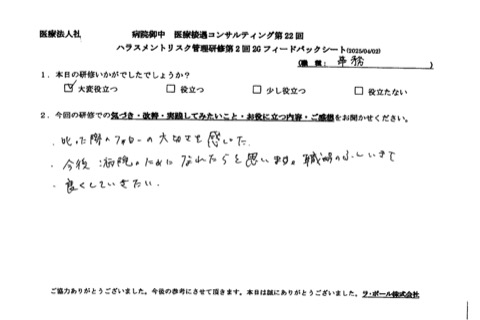 医療法人社　　　病院御中　医療接遇コンサルティング第22回
ハラスメントリスク管理研修第2回2Gフィードバックシート(2025/06/02)
(職種: 事務 )
1．本日の研修いかがでしたでしょうか？
☑ 大変役立つ　☐ 役立つ　☐ 少し役立つ　☐ 役立たない
2．今回の研修での気づき・改善・実践してみたいこと・お役に立つ内容・ご感想をお聞かせください。
・叱った際のフォローの大切さを感じた。
・今後、病院のためになれたらと思います。職場の
・良くしていきたい。
ご協力ありがとうございました。今後の参考にさせて頂きます。本日は誠にありがとうございました。ラ・ポール株式会社